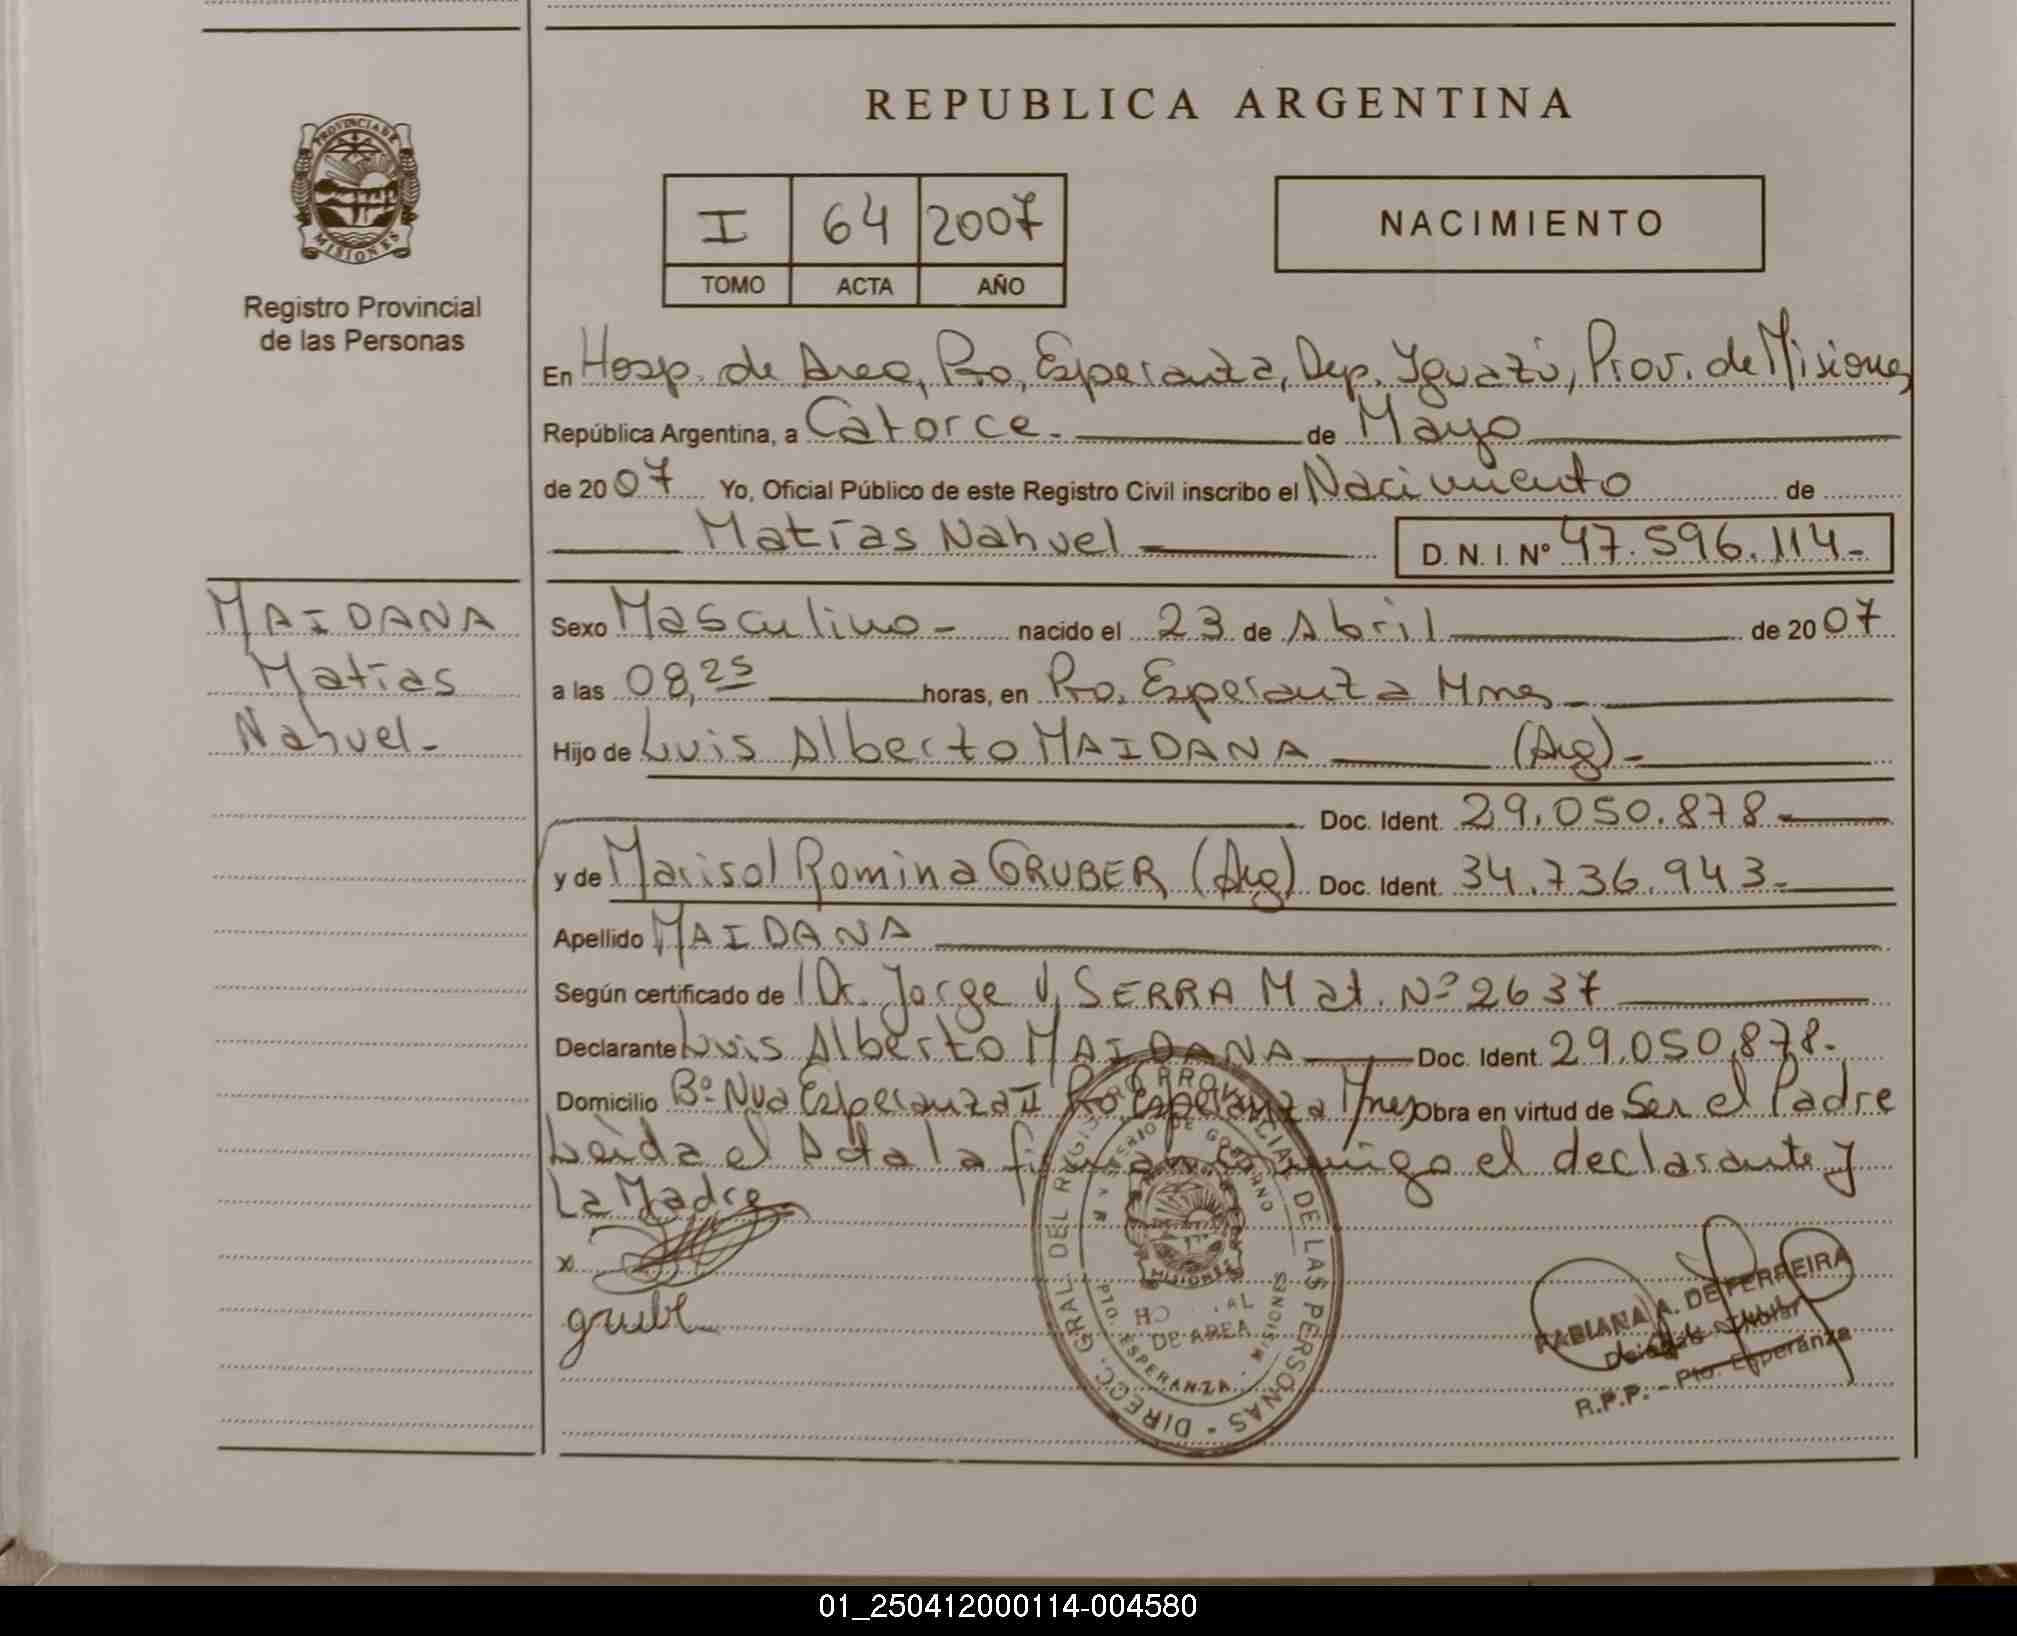 PROVINCIA DE
MISIONES
Registro Provincial
de las Personas
REPUBLICA ARGENTINA
I 64 2007
TOMO ACTA AÑO
NACIMIENTO
En Hosp. de Area, Pto, Esperanza, Dep. Iguazú, Prov. de Misiones
República Argentina, a Catorce.- de Mayo
de 2007 Yo, Oficial Público de este Registro Civil inscribo el Nacimiento de
Matías Nahuel D. N. I. Nº 47.596.114.-
MAIDANA
Matías
Nahuel.-
Sexo Masculino - nacido el 23 de Abril de 2007
a las 08,25 horas, en Pto. Esperanza Mnes
Hijo de Luis Alberto MAIDANA (Arg).-
Doc. Ident. 29.050.878.-
y de Marisol Romina GRUBER (Arg) Doc. Ident. 34.736.943.-
Apellido MAIDANA
Según certificado de Dr. Jorge V, SERRA Mat. Nº 2637
Declarante Luis Alberto MAIDANA Doc. Ident. 29.050.878.-
Domicilio Bº Nva Esperanza II Pto Esperanza Mnes Obra en virtud de Ser el Padre
Leída el Acta la firman conmigo el declarante y
La Madre
x
DIRECC. GRAL. DEL REGISTRO PROVINCIAL DE LAS PERSONAS
DE GOBIERNO
MISIONES
DE AREA
PTO. ESPERANZA - MISIONES
FABIANA A. DE FERREIRA
R.P.P. - Pto. Esperanza
01_250412000114-004580